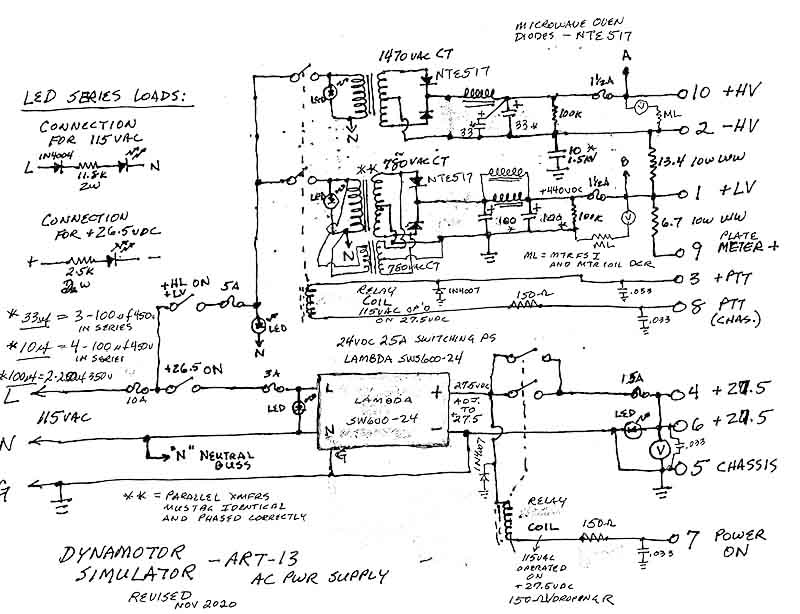 MICROWAVE OVEN
DIODES - NTE517
1470VAC CT
A
NTE517
1½A
10 +HV
LED
V
ML
LED SERIES LOADS:
100K
33*
33*
2 -HV
N
CONNECTION
FOR 115VAC
** 780VAC CT
10*
1.5KV
B
13.4 10W WW
1N4004
NTE517
L
N
11.8K
2W
LED
+440VDC
1½A
1 +LV
.100
*
.100
*
100K
V
6.7 10W WW
CONNECTION
FOR +26.5VDC
N
ML
PLATE
9 METER +
ML = MTR RES I
AND MTR COIL DCR
780VACCT
+
-
2.5K
2W
+HL ON
+LV
5A
3 +PTT
RELAY
COIL
1N4007
.033
115VAC OP'D
ON 27.5VDC
150Ω
8 PTT
(CHAS.)
.033
* 33uf = 3-100uf 450V
IN SERIES
LED
N
* 10uf = 4-100uf 450V
IN SERIES
24VDC 25A SWITCHING PS
LAMBDA SWS600-24
*100uf = 2-250uf 350V
+26.5 ON
L
10A
3A
27.5VDC
ADJ.
TO
+27.5
L
LAMBDA
SW600-24
+
N
-
G
15A
4 +27.5
115VAC
LED
LED
6 +27.5
N
.033
V
"N" NEUTRAL
BUSS
1N4007
5 CHASSIS
G
** = PARALLEL XMFRS
MUST BE IDENTICAL
AND PHASED CORRECTLY
RELAY
COIL
150Ω
7 POWER
ON
.033
DYNAMOTOR
SIMULATOR
- ART-13
AC PWR SUPPLY
115VAC
OPERATED
ON
+27.5VDC
150Ω DROPPING R
REVISED
NOV 2020